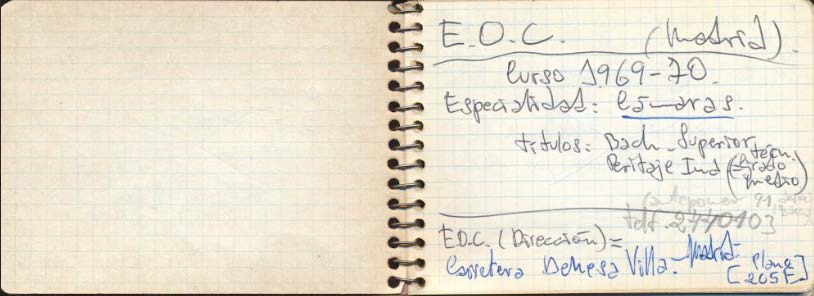 E.O.C. (Madrid).
Curso 1969-70.
Especialidad: Cámaras.
títulos: Bach. Superior
Peritaje Ind (técn. grado medio)
telf. 2440103
E.O.C. (Dirección)=
Carretera Dehesa Villa.-Madrid-